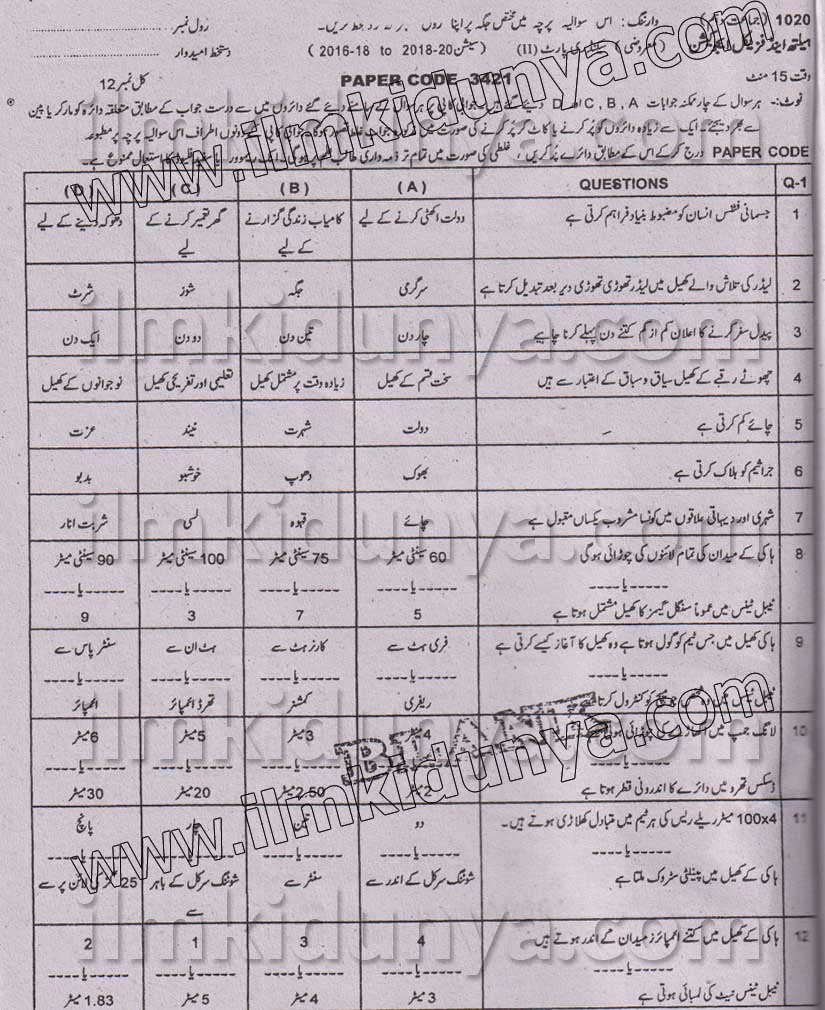 1020 (جماعت دہم) وارننگ: اس سوالیہ پرچہ میں مختص جگہ پر اپنا رول نمبر
رول نمبر
ہیلتھ اینڈ فزیکل ایجوکیشن (معروضی) پارٹ (II) (سیشن 2016-18 to 2018-20) دستخط امیدوار
وقت 15 منٹ PAPER CODE 3421 کل نمبر 12
نوٹ:- ہر سوال کے چار ممکنہ جوابات A, B, C اور D دیئے گئے ہیں جوابی کاپی پر ہر سوال کے سامنے دیئے گئے دائروں میں سے درست جواب کے مطابق متعلقہ دائرہ کو مارکر یا پین
سے بھر دیجئے۔ ایک سے زیادہ دائروں کو پُر کرنے یا کاٹ کر پُر کرنے کی صورت میں مذکورہ جواب غلط تصور ہوگا۔ جوابی کاپی کے دونوں اطراف اس سوالیہ پرچہ پر مطبوعہ
PAPER CODE درج کرکے اس کے مطابق دائرے پُر کریں، غلطی کی صورت میں تمام تر ذمہ داری طالب علم پر ہوگی۔ انک ریموور یا سفید فلیوڈ کا استعمال ممنوع ہے۔
Q-1 QUESTIONS (A) (B) (C) (D)
1 جسمانی فٹنس انسان کو مضبوط بنیاد فراہم کرتی ہے دولت اکٹھی کرنے کے لیے کامیاب زندگی گزارنے کے لیے گھر تعمیر کرنے کے لیے دھوکہ دینے کے لیے
2 لیڈر کی تلاش والے کھیل میں لیڈر تھوڑی تھوڑی دیر بعد تبدیل کرتا ہے سرگرمی جگہ شوز شرٹ
3 پیدل سفر کرنے کا اعلان کم از کم کتنے دن پہلے کرنا چاہیے چار دن تین دن دو دن ایک دن
4 چھوٹے رقبے کے کھیل سیاق و سباق کے اعتبار سے ہیں سخت قسم کے کھیل زیادہ وقت پر مشتمل کھیل تعلیمی اور تفریحی کھیل نوجوانوں کے کھیل
5 چائے کم کرتی ہے دولت شہرت نیند عزت
6 جراثیم کو ہلاک کرتی ہے بھوک دھوپ خوشبو بدبو
7 شہری اور دیہاتی علاقوں میں کونسا مشروب یکساں مقبول ہے چائے قہوہ لسی شربت انار
8 ہاکی کے میدان کی تمام لائنوں کی چوڑائی ہوگی 60 سینٹی میٹر 75 سینٹی میٹر 100 سینٹی میٹر 90 سینٹی میٹر
----یا---- ----یا---- ----یا---- ----یا---- ----یا----
ٹیبل ٹینس میں عموماً سنگل گیمز کا کھیل مشتمل ہوتا ہے 5 7 3 9
9 ہاکی کھیل میں جس ٹیم کو گول ہوتا ہے وہ کھیل کا آغاز کیسے کرتی ہے فری ہٹ سے کارنر ہٹ سے ہٹ ان سے سنٹر پاس سے
----یا---- ----یا---- ----یا---- ----یا---- ----یا----
ٹیبل ٹینس میں کو کنٹرول کرتا ہے ریفری کمشنر تھرڈ امپائر امپائر
10 لانگ جمپ میں اکھاڑے کی چوڑائی ہوتی ہے 4 میٹر 3 میٹر 5 میٹر 6 میٹر
ڈسکس تھرو میں دائرے کا اندرونی قطر ہوتا ہے 2 میٹر 2.50 میٹر 20 میٹر 30 میٹر
11 100x4 میٹر ریلے ریس کی ہر ٹیم میں متبادل کھلاڑی ہوتے ہیں۔ دو تین چار پانچ
----یا---- ----یا---- ----یا---- ----یا---- ----یا----
ہاکی کے کھیل میں پینلٹی سٹروک ملتا ہے شوٹنگ سرکل کے اندر سے سنٹر سے شوٹنگ سرکل کے باہر سے 25 گز کی لائن پر سے
12 ہاکی کے کھیل میں کتنے امپائرز میدان کے اندر ہوتے ہیں 4 3 1 2
----یا---- ----یا---- ----یا---- ----یا---- ----یا----
ٹیبل ٹینس نیٹ کی لمبائی ہوتی ہے 3 میٹر 4 میٹر 5 میٹر 1.83 میٹر
www.ilmkidunya.com
www.ilmkidunya.com
ilmkidunya.com
ilmkidunya.com
ilmkidunya.com
ilmkidunya.com
ilmkidunya.com